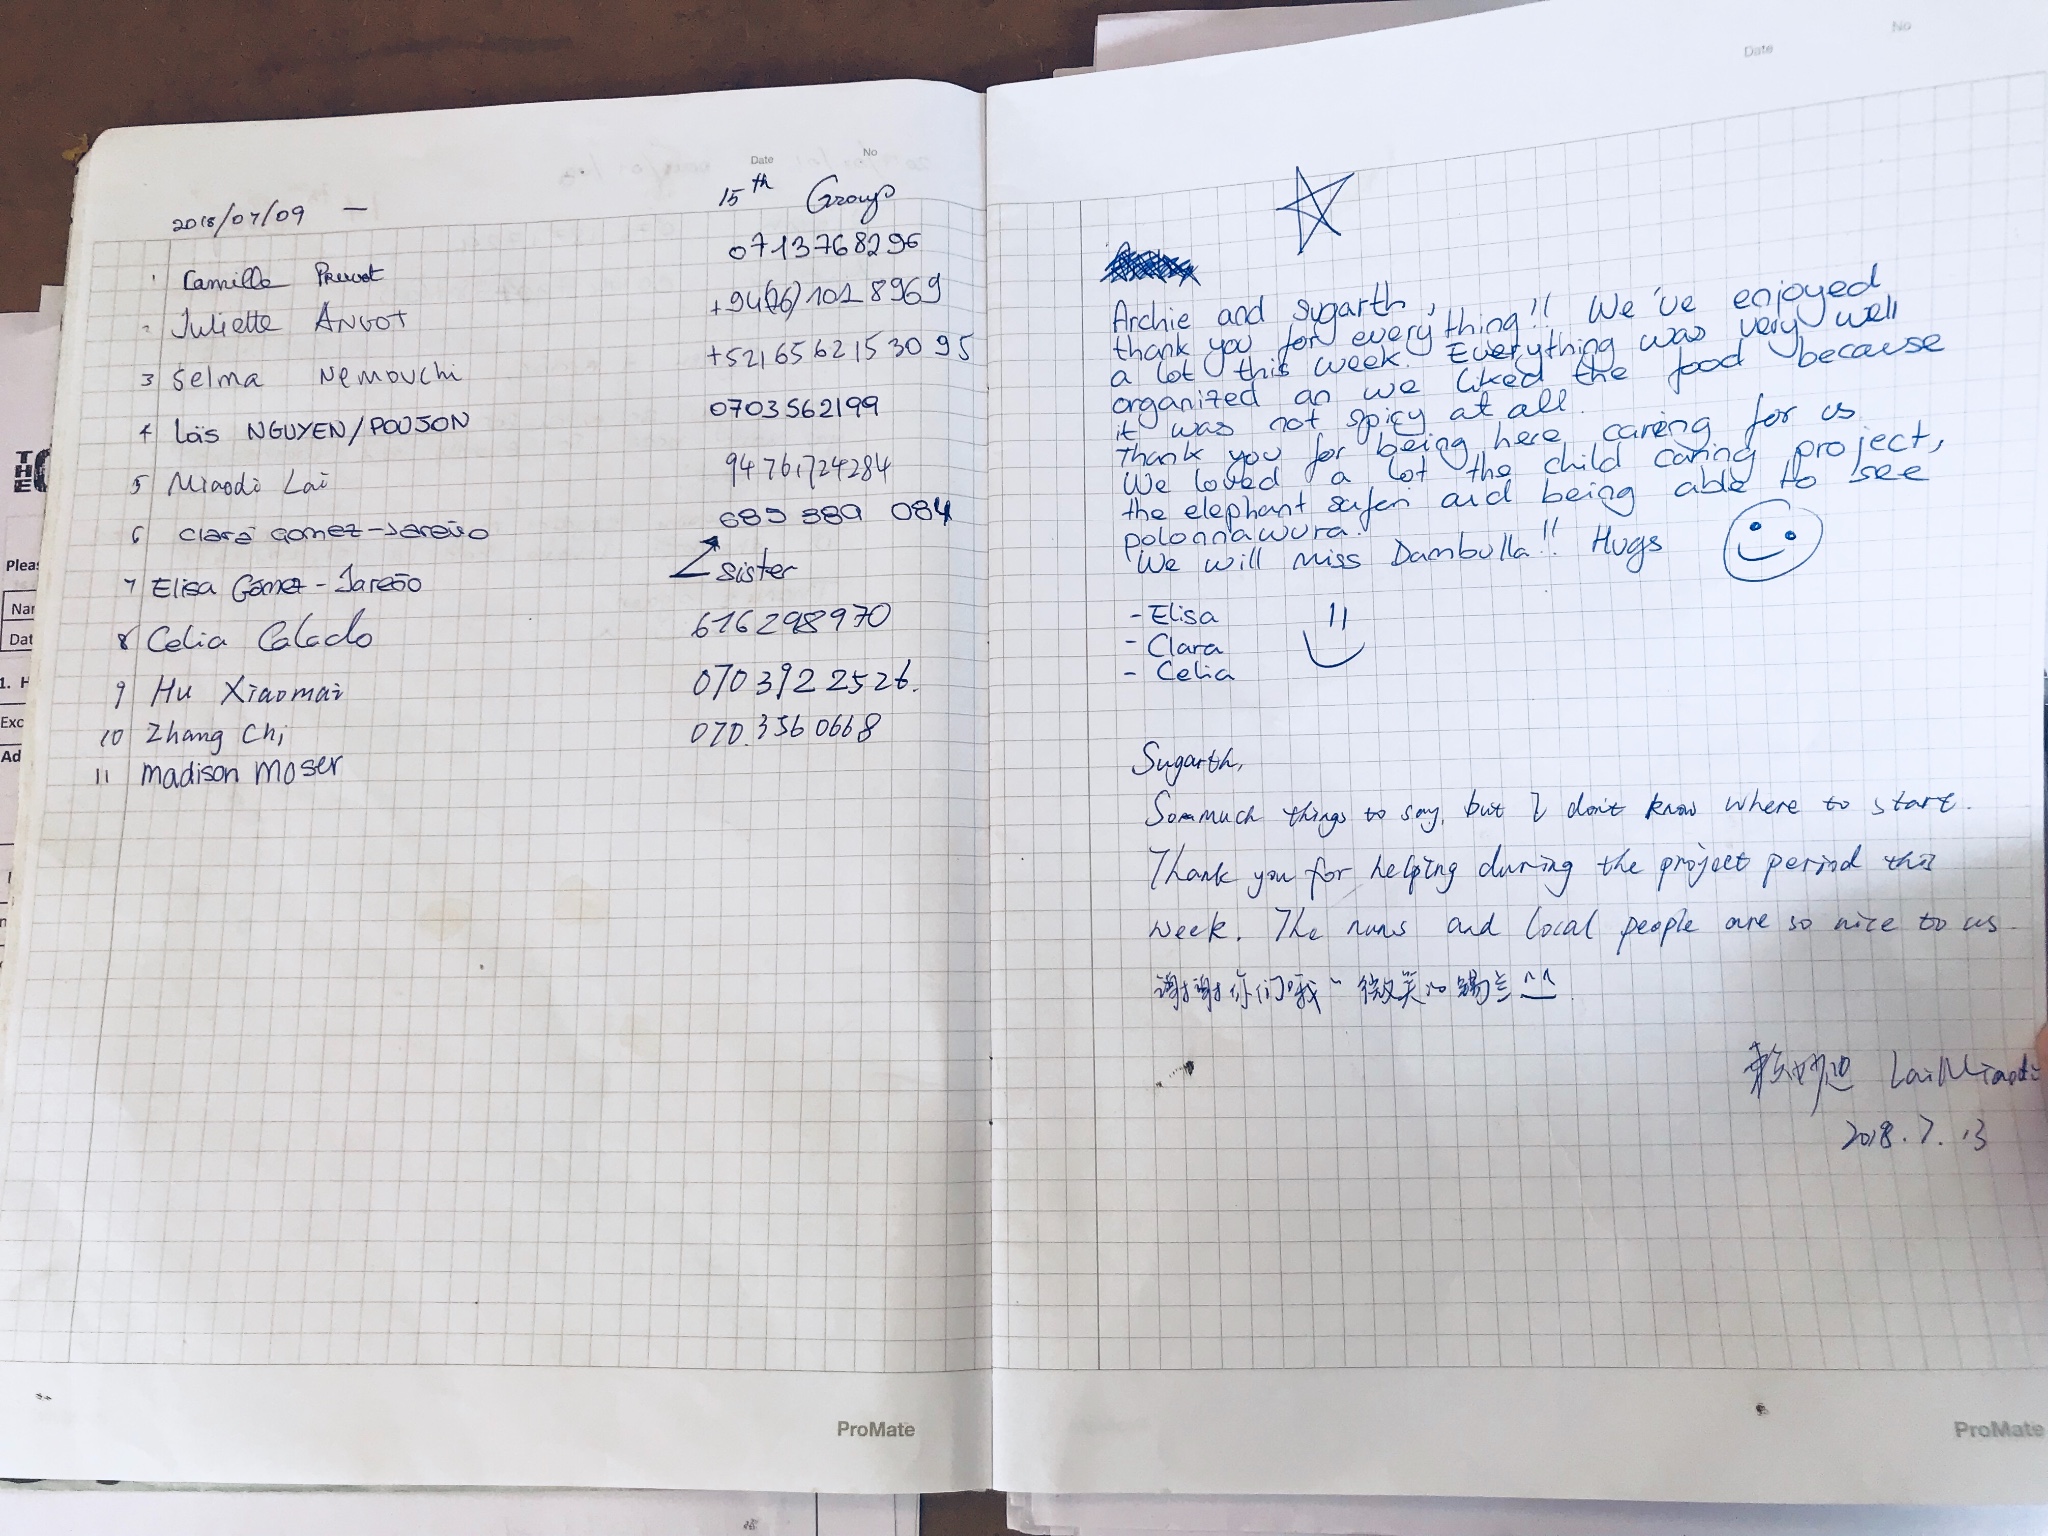 Date No
2018/07/09 — 15th Group
1 Camille Pruvot 0713768296
2 Juliette ANGOT +94(76) 101 8969
3 Selma Nemouchi +5216562153095
4 Laïs NGUYEN/POUJON 0703562199
5 Miaodi Lai 94 761724284
6 Clara Gomez-Jareño 689 389 084
7 Elisa Gómez-Jareño sister
8 Celia Calado 616298970
9 Hu Xiaomai 0703922526.
10 Zhang Chi 070.3560668
11 Madison Moser
ProMate
Date No
Archie and Sugarth,
thank you for everything!! We've enjoyed
a lot this week. Everything was very well
organized an we liked the food because
it was not spicy at all.
Thank you for being here, caring for us.
We loved a lot the child caring project,
the elephant safari and being able to see
polonnawura!
We will miss Dambulla!! Hugs
- Elisa
- Clara
- Celia
Sugarth,
So much things to say, but I don't know where to start.
Thank you for helping during the project period this
week. The nuns and local people are so nice to us.
谢谢你们哦~ 微笑の锡兰
赖妙迪 Lai Miaodi
2018.7.13
ProMate
THE
Plea
Nar
Dat
1. H
Exc
Ad